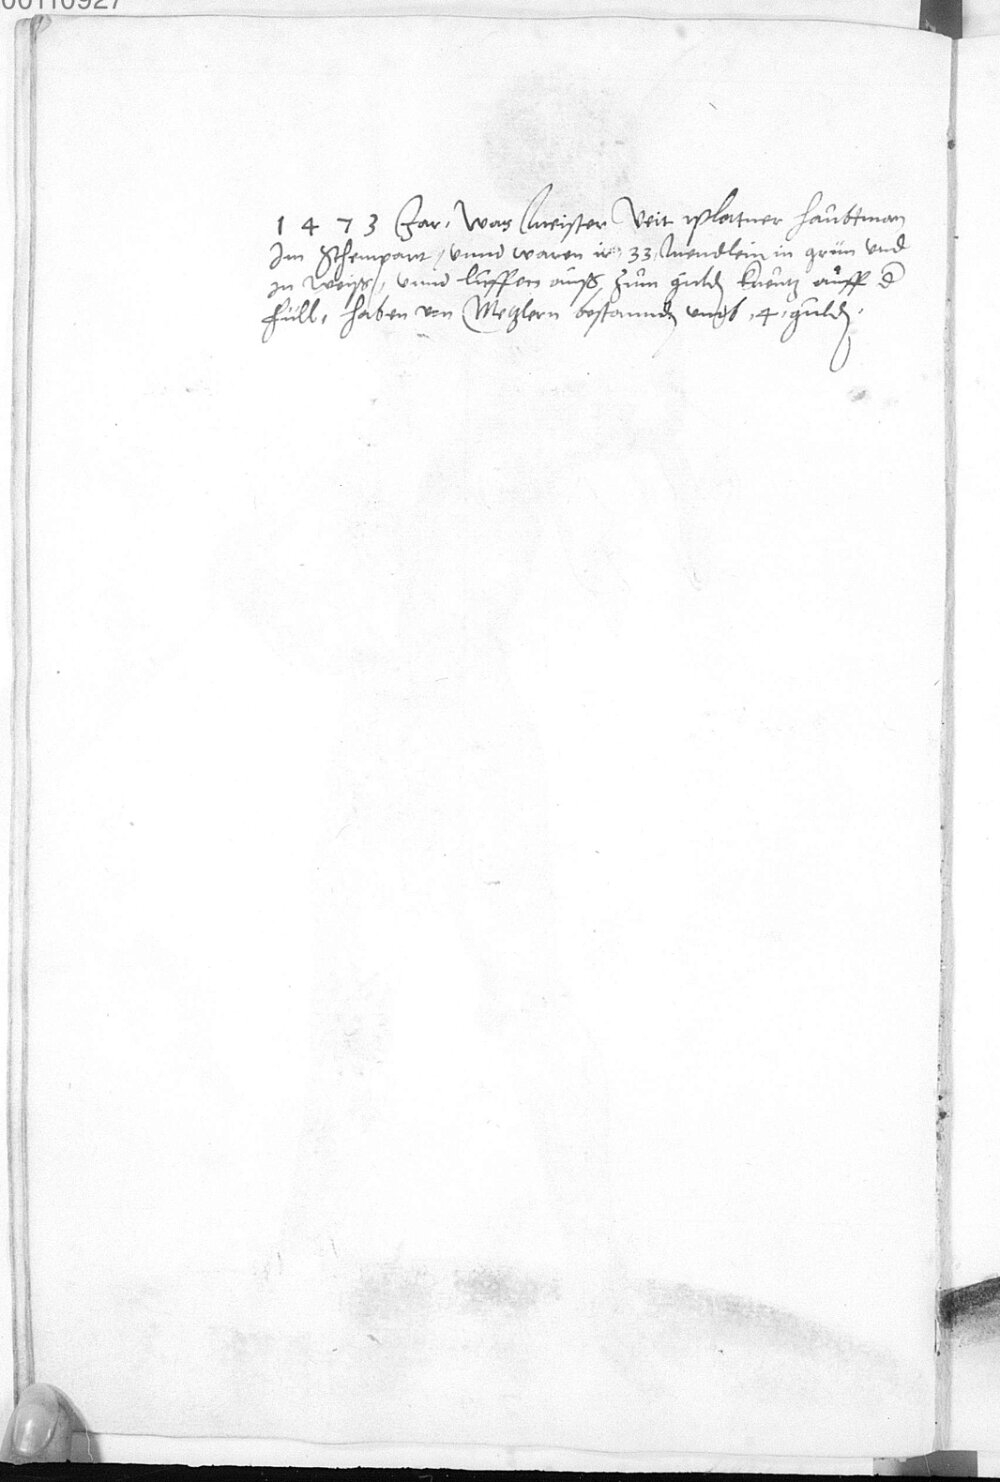 00110927
1 4 7 3 Jar, was meister Veit Plattner haubtman
Im Schempart, vnnd waren ir 33 mendlein in grün vnd
in weiß, vnnd luffen auß zum guld kreutz auff d
Füll, haben von Metzlern bestannd vmb 4 guld.